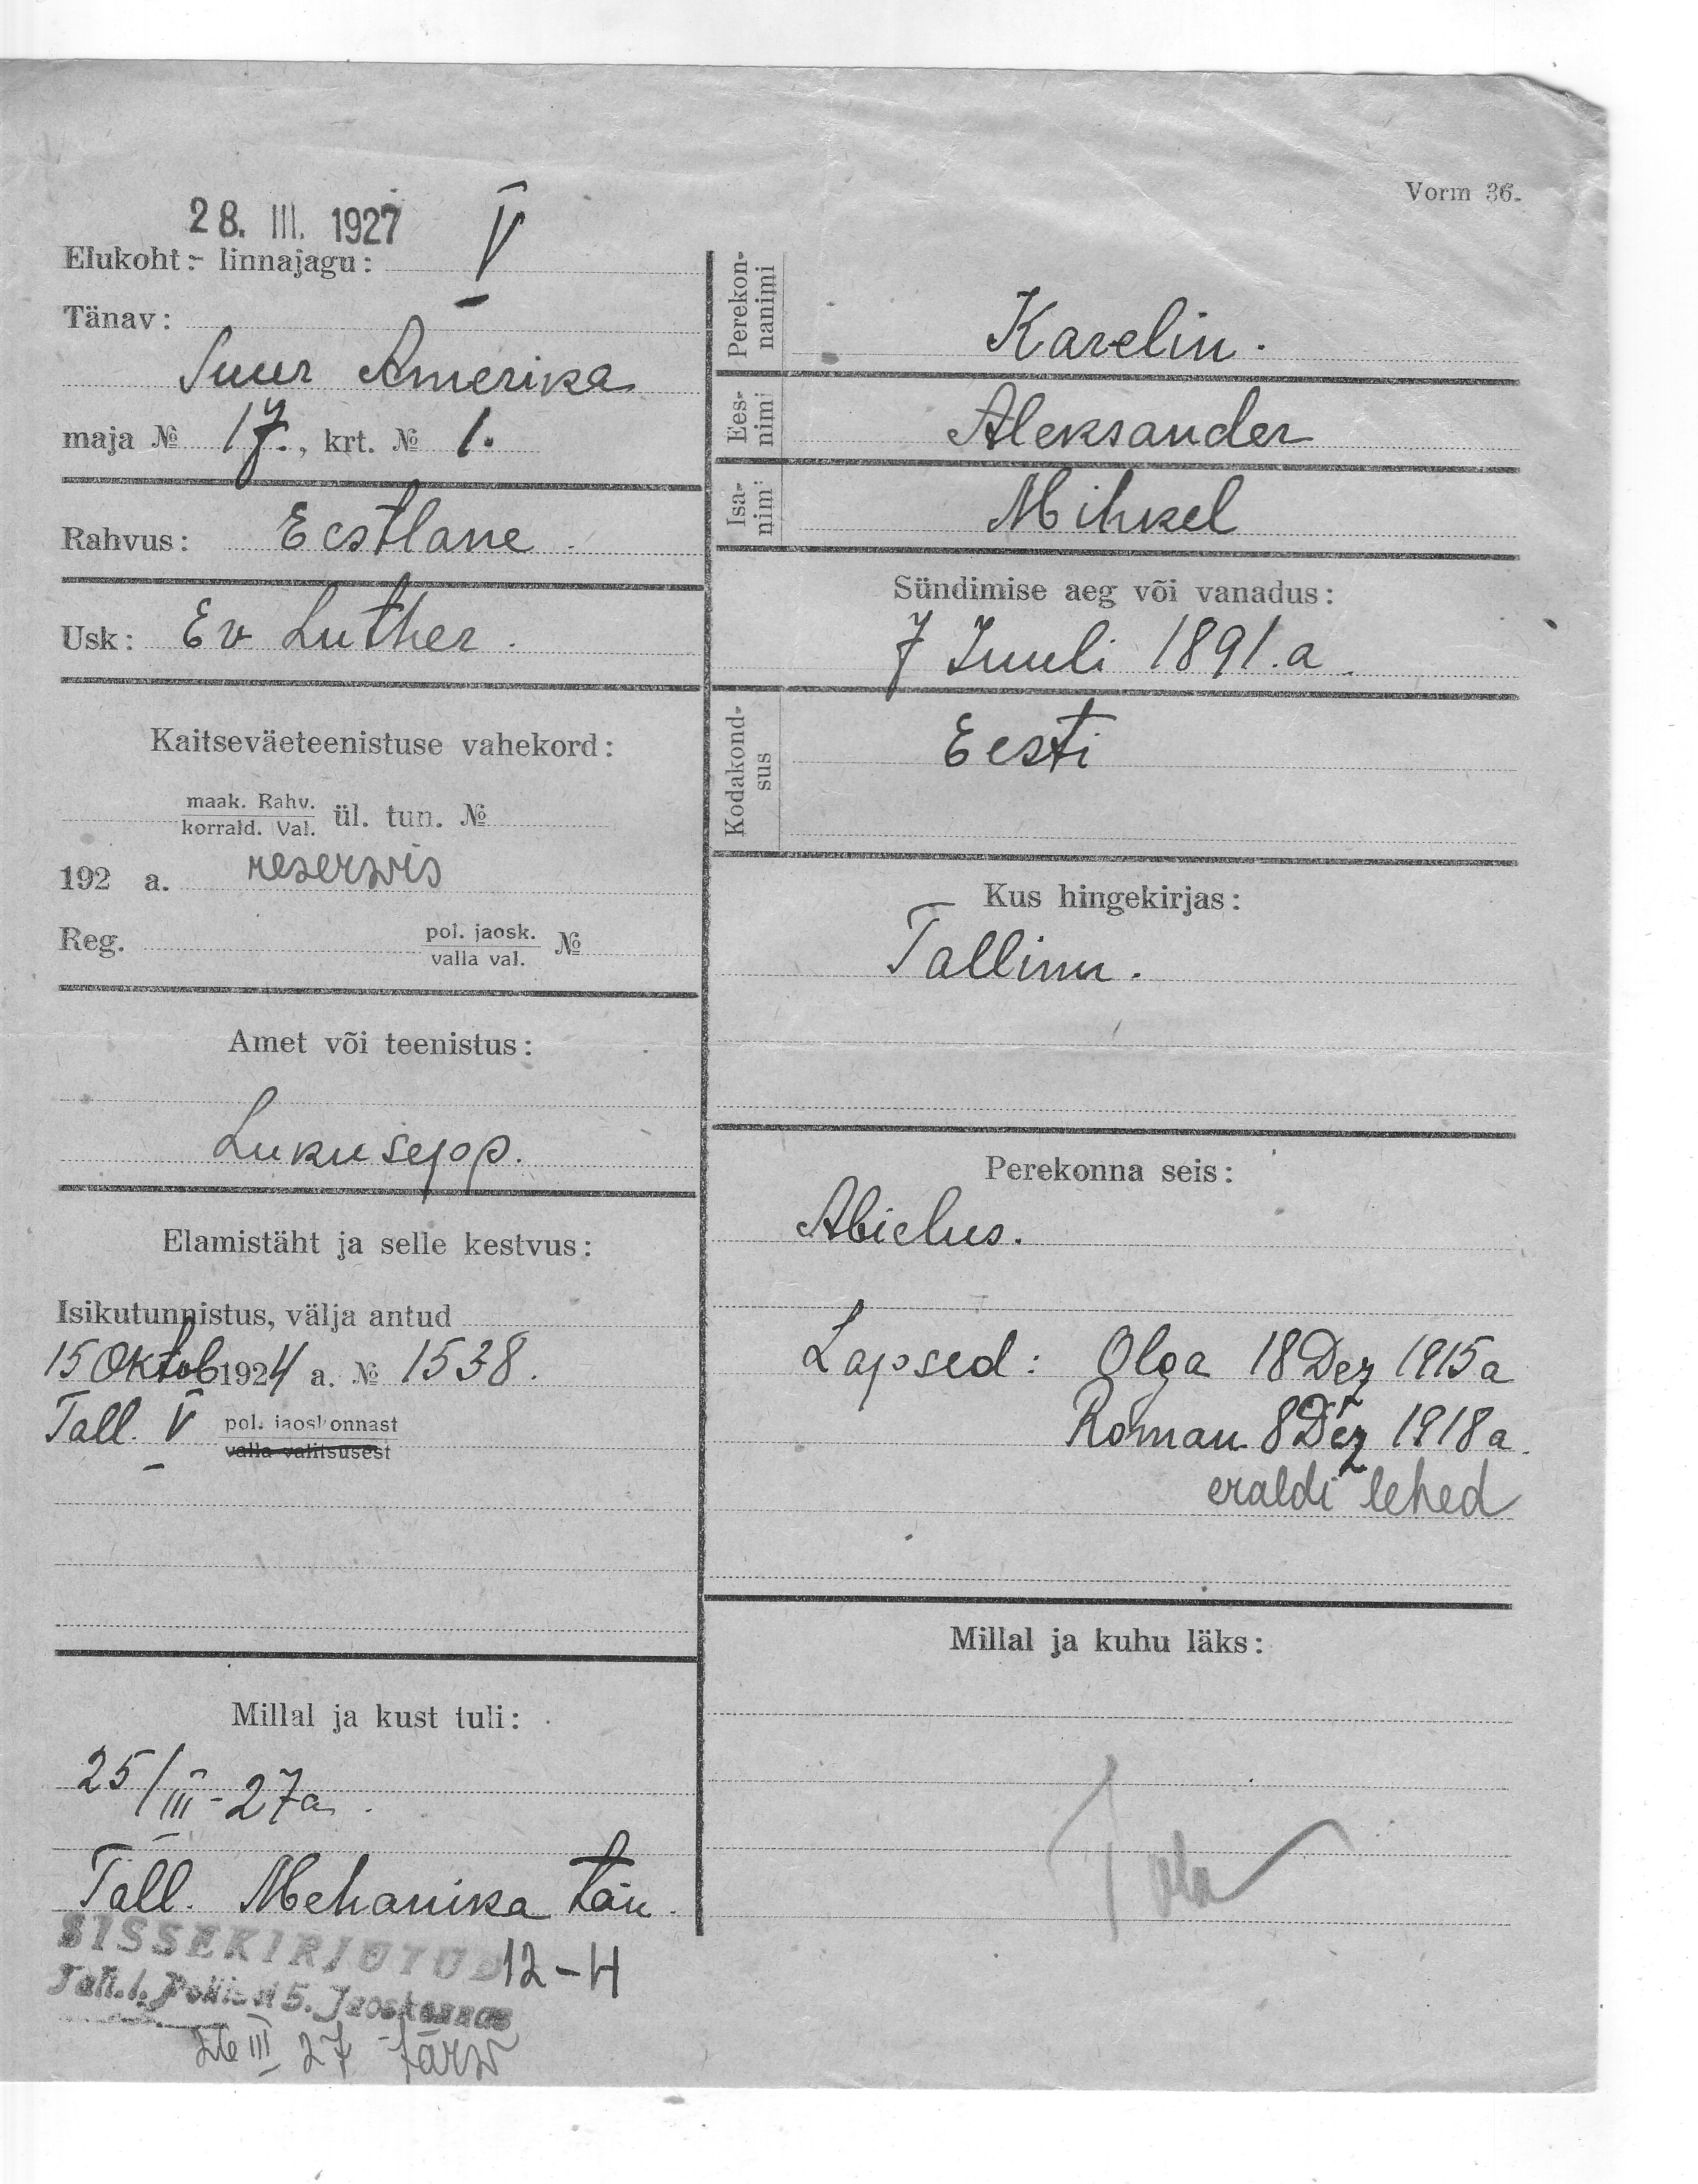 Vorm 36.
28. III. 1927
Elukoht:- linnajagu: V
Tänav:
Suur Amerika
maja № 17., krt. № 1.
Rahvus: Eestlane.
Usk: Ev Luther.
Kaitseväeteenistuse vahekord:
maak. Rahv.
korrald. Val. ül. tun. №
192 a. reserwis
Reg. pol. jaosk.
valla val. №
Amet või teenistus:
Lukusepp.
Elamistäht ja selle kestvus:
Isikutunnistus, välja antud
15 Oktob 1924 a. № 1538.
Tall. V pol. jaoskonnast
valla valitsusest
Millal ja kust tuli:
25/III-27a.
Tall. Mehanika tän.
12-4
SISSEKIRJUTUD
Tall. l. Politsei 5. Jaoskonnas
26 III 27
Perekon-
nanimi
Karelin.
Ees-
nimi
Aleksander
Isa-
nimi
Mihkel
Sündimise aeg või vanadus:
7 Juuli 1891.a.
Kodakond-
sus
Eesti
Kus hingekirjas:
Tallinn.
Perekonna seis:
Abielus.
Lapsed: Olga 18 Dez 1915 a
Roman 8 Dez 1918 a.
eraldi lehed
Millal ja kuhu läks: